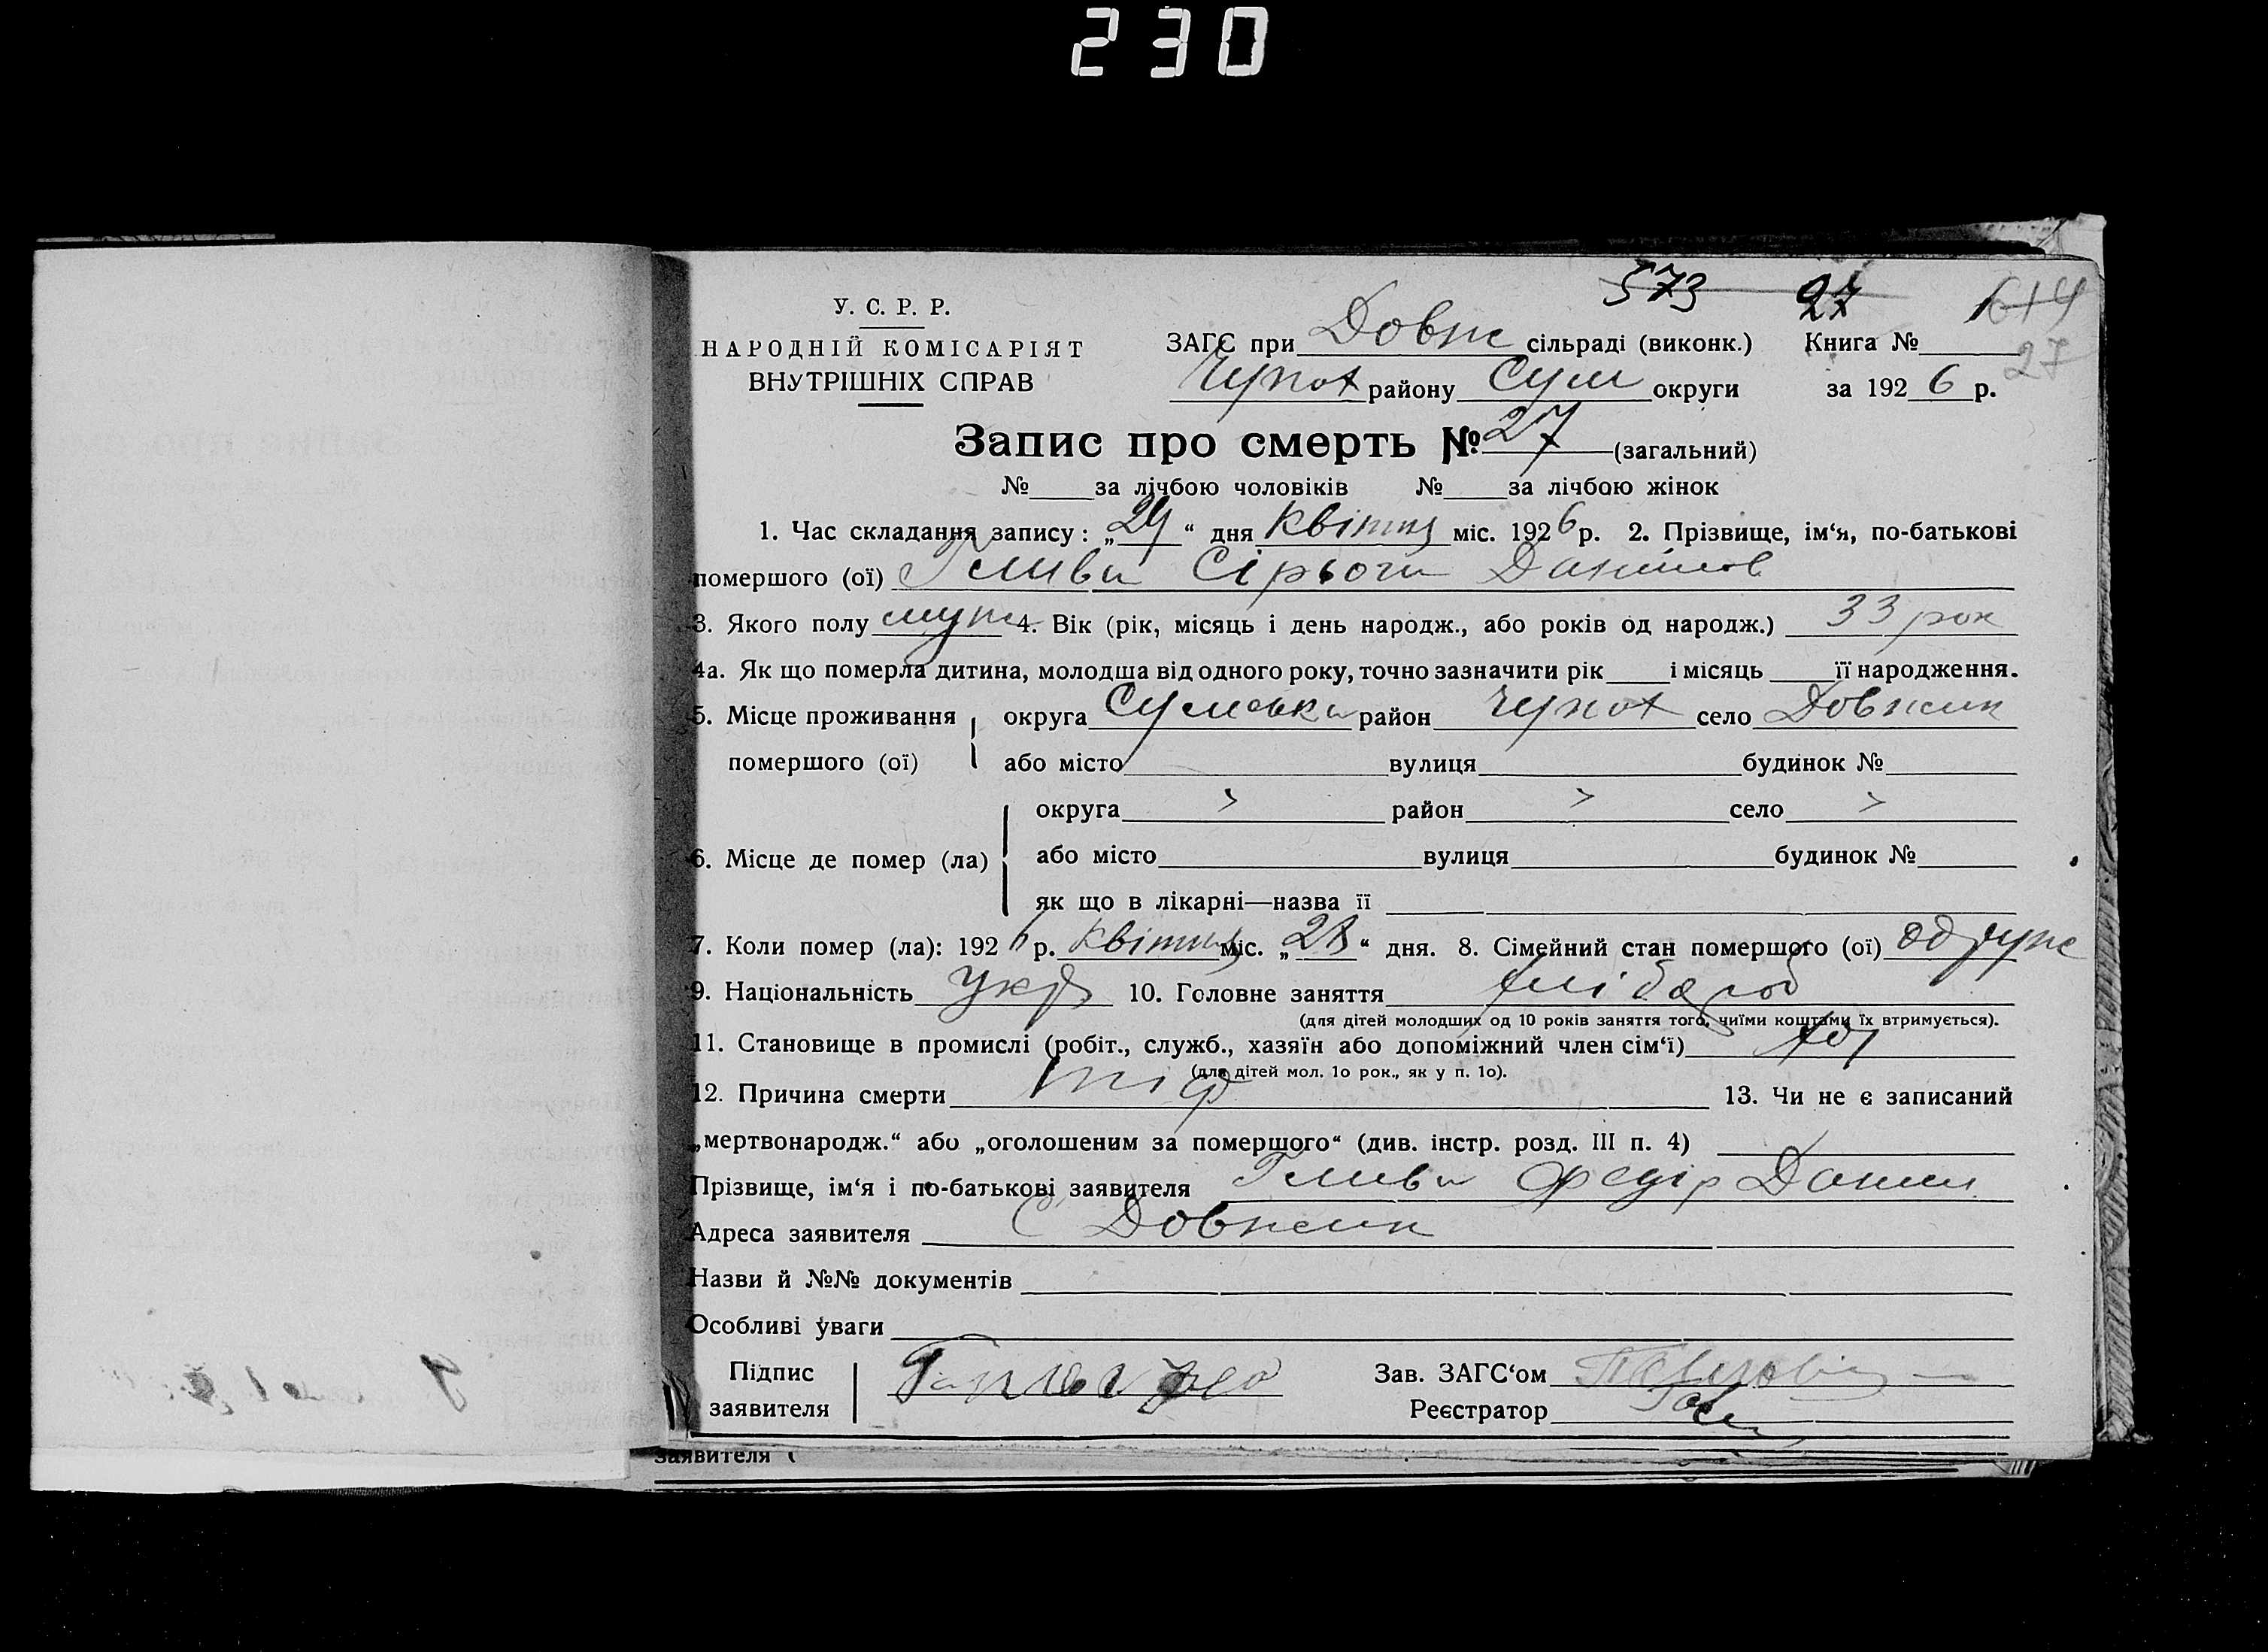 230
573 27 614
У. С. Р. Р.
НАРОДНІЙ КОМІСАРІЯТ
ВНУТРІШНІХ СПРАВ
ЗАГС при Довж сільраді (виконк.) Книга №
27
району Сум округи за 192 6 р.
Запис про смерть № 27 (загальний)
№ за лічбою чоловіків № за лічбою жінок
1. Час складання запису: „29“ дня Квітня міс. 1926 р. 2. Прізвище, ім‘я, по-батькові
помершого (ої) Глива Сірьога Данилов
3. Якого полу муж 4. Вік (рік, місяць і день народж., або років од народж.) 33 рок
4а. Як що померла дитина, молодша від одного року, точно зазначити рік і місяць її народження.
5. Місце проживання округа Сумська район село Довжик
помершого (ої) або місто вулиця будинок №
округа > район > село >
6. Місце де помер (ла) або місто вулиця будинок №
як що в лікарні—назва її
7. Коли помер (ла): 192 6 р. Квітня міс. „28“ дня. 8. Сімейний стан помершого (ої) одруже
9. Національність Укр 10. Головне заняття хлібороб
(для дітей молодших од 10 років заняття того, чиїми коштами їх втримується).
11. Становище в промислі (робіт., служб., хазяїн або допоміжний член сім‘ї) хоз
(для дітей мол. 1о рок., як у п. 1о).
12. Причина смерти тіф 13. Чи не є записаний
„мертвонародж.“ або „оголошеним за помершого“ (див. інстр. розд. III п. 4)
Прізвище, ім‘я і по-батькові заявителя Глива Федір Данил
Адреса заявителя С Довжик
Назви й №№ документів
Особливі уваги
Підпис Зав. ЗАГС‘ом
заявителя Реєстратор
заявителя